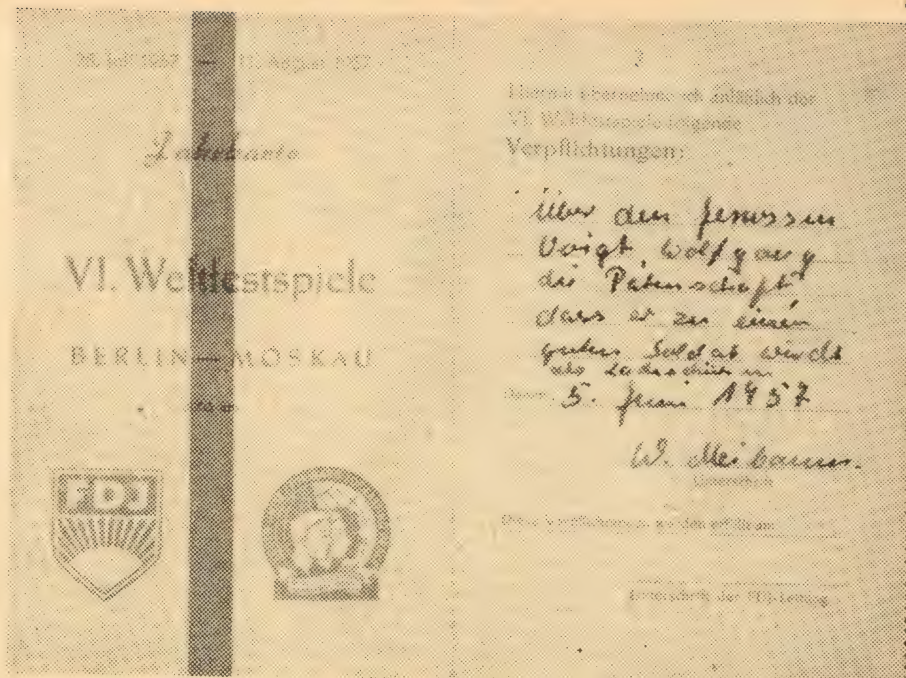 28. Juli 1957 — 11. August 1957
VI. Weltfestspiele
BERLIN — MOSKAU
FDJ
2
Hiermit übernehme ich anläßlich der
VI. Weltfestspiele folgende
Verpflichtungen:
Über den Genossen
Voigt, Wolfgang
die Patenschaft
dass er zu einen
guten Soldat wird
als Ladeschütze
5. Juni 1957
W. Meibaum
Unterschrift
Diese Verpflichtungen wurden erfüllt am:
Unterschrift der FDJ-Leitung